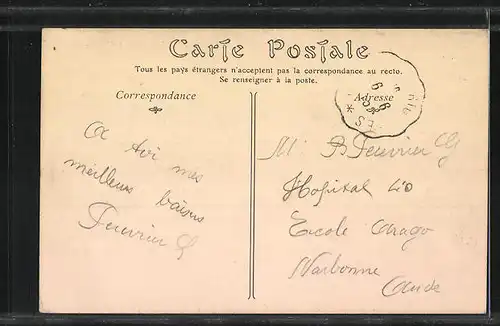 Carte Postale
Tous les pays étrangers n'acceptent pas la correspondance au recto.
Se renseigner à la poste.
Correspondance
Adresse
A toi mes
meilleurs baisers
Feuvrier G
M. B Feuvrier G
Hopital 40
Ecole Arago
Narbonne
Aude